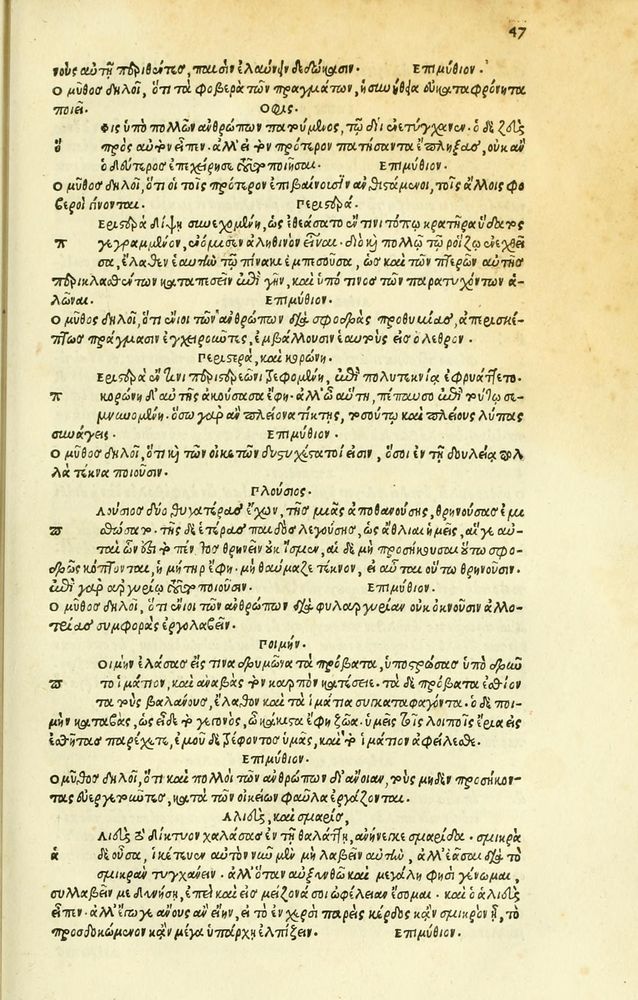 47
νους αὐτῇ περιθέντες, παισὶν ἐλαύνειν δεδώκασιν. Ἐπιμύθιον.
Ὁ μῦθος δηλοῖ, ὅτι τὰ φοβερὰ τῶν πραγμάτων, ἡ συνήθεια εὐκαταφρόνητα
ποιεῖ. Ὄφις.
φις ὑπὸ πολλῶν ἀνθρώπων πατούμενος, τῷ διῒ ἐνετύγχανεν. ὁ δὲ ζεὺς
ὄ πρὸς αὐτὸν εἶπεν. ἀλλ' εἰ τὸν πρότερον πατήσαντα ἔπληξας, οὐκ ἂν
ὁ δεύτερος ἐπεχείρησε τοῦτο ποιῆσαι. Ἐπιμύθιον.
Ὁ μῦθος δηλοῖ, ὅτι οἱ τοῖς πρότερον ἐπιβαίνουσιν ἀνθιστάμενοι, τοῖς ἄλλοις φο
βεροὶ γίνονται. Περιστερά.
Εριστερὰ δίψῃ συνεχομένη, ὡς ἐθεάσατο ἔν τινι τόπῳ κρατῆρα ὕδατος
π γεγραμμένον, ἐνόμισεν ἀληθινὸν εἶναι. διὸ καὶ πολλῷ τῷ ῥοίζῳ ἐνεχθεῖ
σα, ἔλαθεν ἑαυτὴν τῷ πίνακι ἐμπεσοῦσα, ὡς καὶ τῶν πτερῶν αὐτῆς
περικλασθέντων καταπεσεῖν ἐπὶ γῆν, καὶ ὑπό τινος τῶν παρατυχόντων ἁ-
λῶναι. Ἐπιμύθιον.
Ὁ μῦθος δηλοῖ, ὅτι ἔνιοι τῶν ἀνθρώπων διὰ σφοδρὰς προθυμίας, ἀπερισκέ-
πτως πράγμασιν ἐγχειροῦντες, ἐμβάλλουσιν ἑαυτοὺς εἰς ὄλεθρον.
Περιστερὰ, καὶ κορώνη.
Εριστερὰ ἔν τινι περιστερεῶνι τρεφομένη, ἐπὶ πολυτεκνίᾳ ἐφρυάττετο.
π κορώνη δ' αὐτῆς ἀκούσασα ἔφη. ἀλλ' ὦ αὕτη, πέπαυσο ἐπὶ τούτῳ σε-
μνυνομένη. ὅσῳ γὰρ ἂν πλείονα τίκτῃς, τοσούτῳ καὶ πλείους λύπας
συνάγεις. Ἐπιμύθιον.
Ὁ μῦθος δηλοῖ, ὅτι καὶ τῶν οἰκετῶν δυστυχέστατοί εἰσιν, ὅσοι ἐν τῇ δουλείᾳ πολ
λὰ τέκνα ποιοῦσιν.
Πλούσιος.
λούσιος δύο θυγατέρας ἔχων, τῆς μιᾶς ἀποθανούσης, θρηνούσας ἐμι
π σθώσατο. τῆς δὲ ἑτέρας παιδὸς λεγούσης, ὡς ἄθλιαι ἡμεῖς, αἵ γε αὐ-
ταὶ ὧν ἐστὶ τὸ πένθος θρηνεῖν οὐκ ἴσμεν, αἱ δὲ μὴ προσήκουσαι οὕτω σφο-
δρῶς κόπτονται, ἡ μήτηρ ἔφη. μὴ θαύμαζε τέκνον, εἰ αὗται οὕτω θρηνοῦσιν.
ἐπὶ γὰρ ἀργυρίῳ τοῦτο ποιοῦσιν. Ἐπιμύθιον.
Ὁ μῦθος δηλοῖ, ὅτι ἔνιοι τῶν ἀνθρώπων διὰ φυλαργυρίαν οὐκ ὀκνοῦσιν ἀλλο-
τρίας συμφορὰς ἐργολαβεῖν.
Ποιμήν.
Οιμὴν ἐλάσας εἴς τινα δρυμῶνα τὰ πρόβατα, ὑποστρώσας ὑπὸ δρῦν
π τὸ ἱμάτιον, καὶ ἀναβὰς τὸν καρπὸν κατέσειε. τὰ δὲ πρόβατα ἐσθίον
τα τοὺς βαλάνους, ἔλαθον καὶ τὰ ἱμάτια συγκαταφαγόντα. ὁ δὲ ποι-
μὴν καταβὰς, ὡς εἶδε τὸ γεγονὸς, ὦ κάκιστα ἔφη ζῶα. ὑμεῖς τοῖς λοιποῖς ἔρια εἰς
ἐσθῆτας παρέχετε, ἐμοῦ δὲ τρέφοντος ὑμᾶς, καὶ τὸ ἱμάτιον ἀφείλεσθε.
Ἐπιμύθιον.
Ὁ μῦθος δηλοῖ, ὅτι καὶ πολλοὶ τῶν ἀνθρώπων δι' ἄνοιαν, τοὺς μηδὲν προσήκον-
τας εὐεργετοῦντες, κατὰ τῶν οἰκείων φαῦλα ἐργάζονται.
Ἁλιεὺς, καὶ σμαρίς,
Λιεὺς τὸ δίκτυον χαλάσας ἐν τῇ θαλάττῃ, ἀνήνεγκε σμαρίδα. σμικρὰ
ἁ δὲ οὖσα, ἱκέτευεν αὐτὸν νῦν μὲν μὴ λαβεῖν αὐτὴν, ἀλλ' ἐᾶσαι διὰ τὸ
σμικρὰν τυγχάνειν. ἀλλ' ὅταν αὐξηνθῶ καὶ μεγάλη φησὶ γένωμαι,
συλλαβεῖν με δυνήσῃ, ἐπεὶ καὶ εἰς μείζονά σοι ὠφέλειαν ἔσομαι. καὶ ὁ ἁλιεὺς
εἶπεν. ἀλλ' ἔγωγε ἄνους ἂν εἴην, εἰ τὸ ἐν χερσὶ παρεὶς κέρδος κἂν σμικρὸν ᾖ, τὸ
προσδοκώμενον κἂν μέγα ὑπάρχῃ ἐλπίζειν. Ἐπιμύθιον.